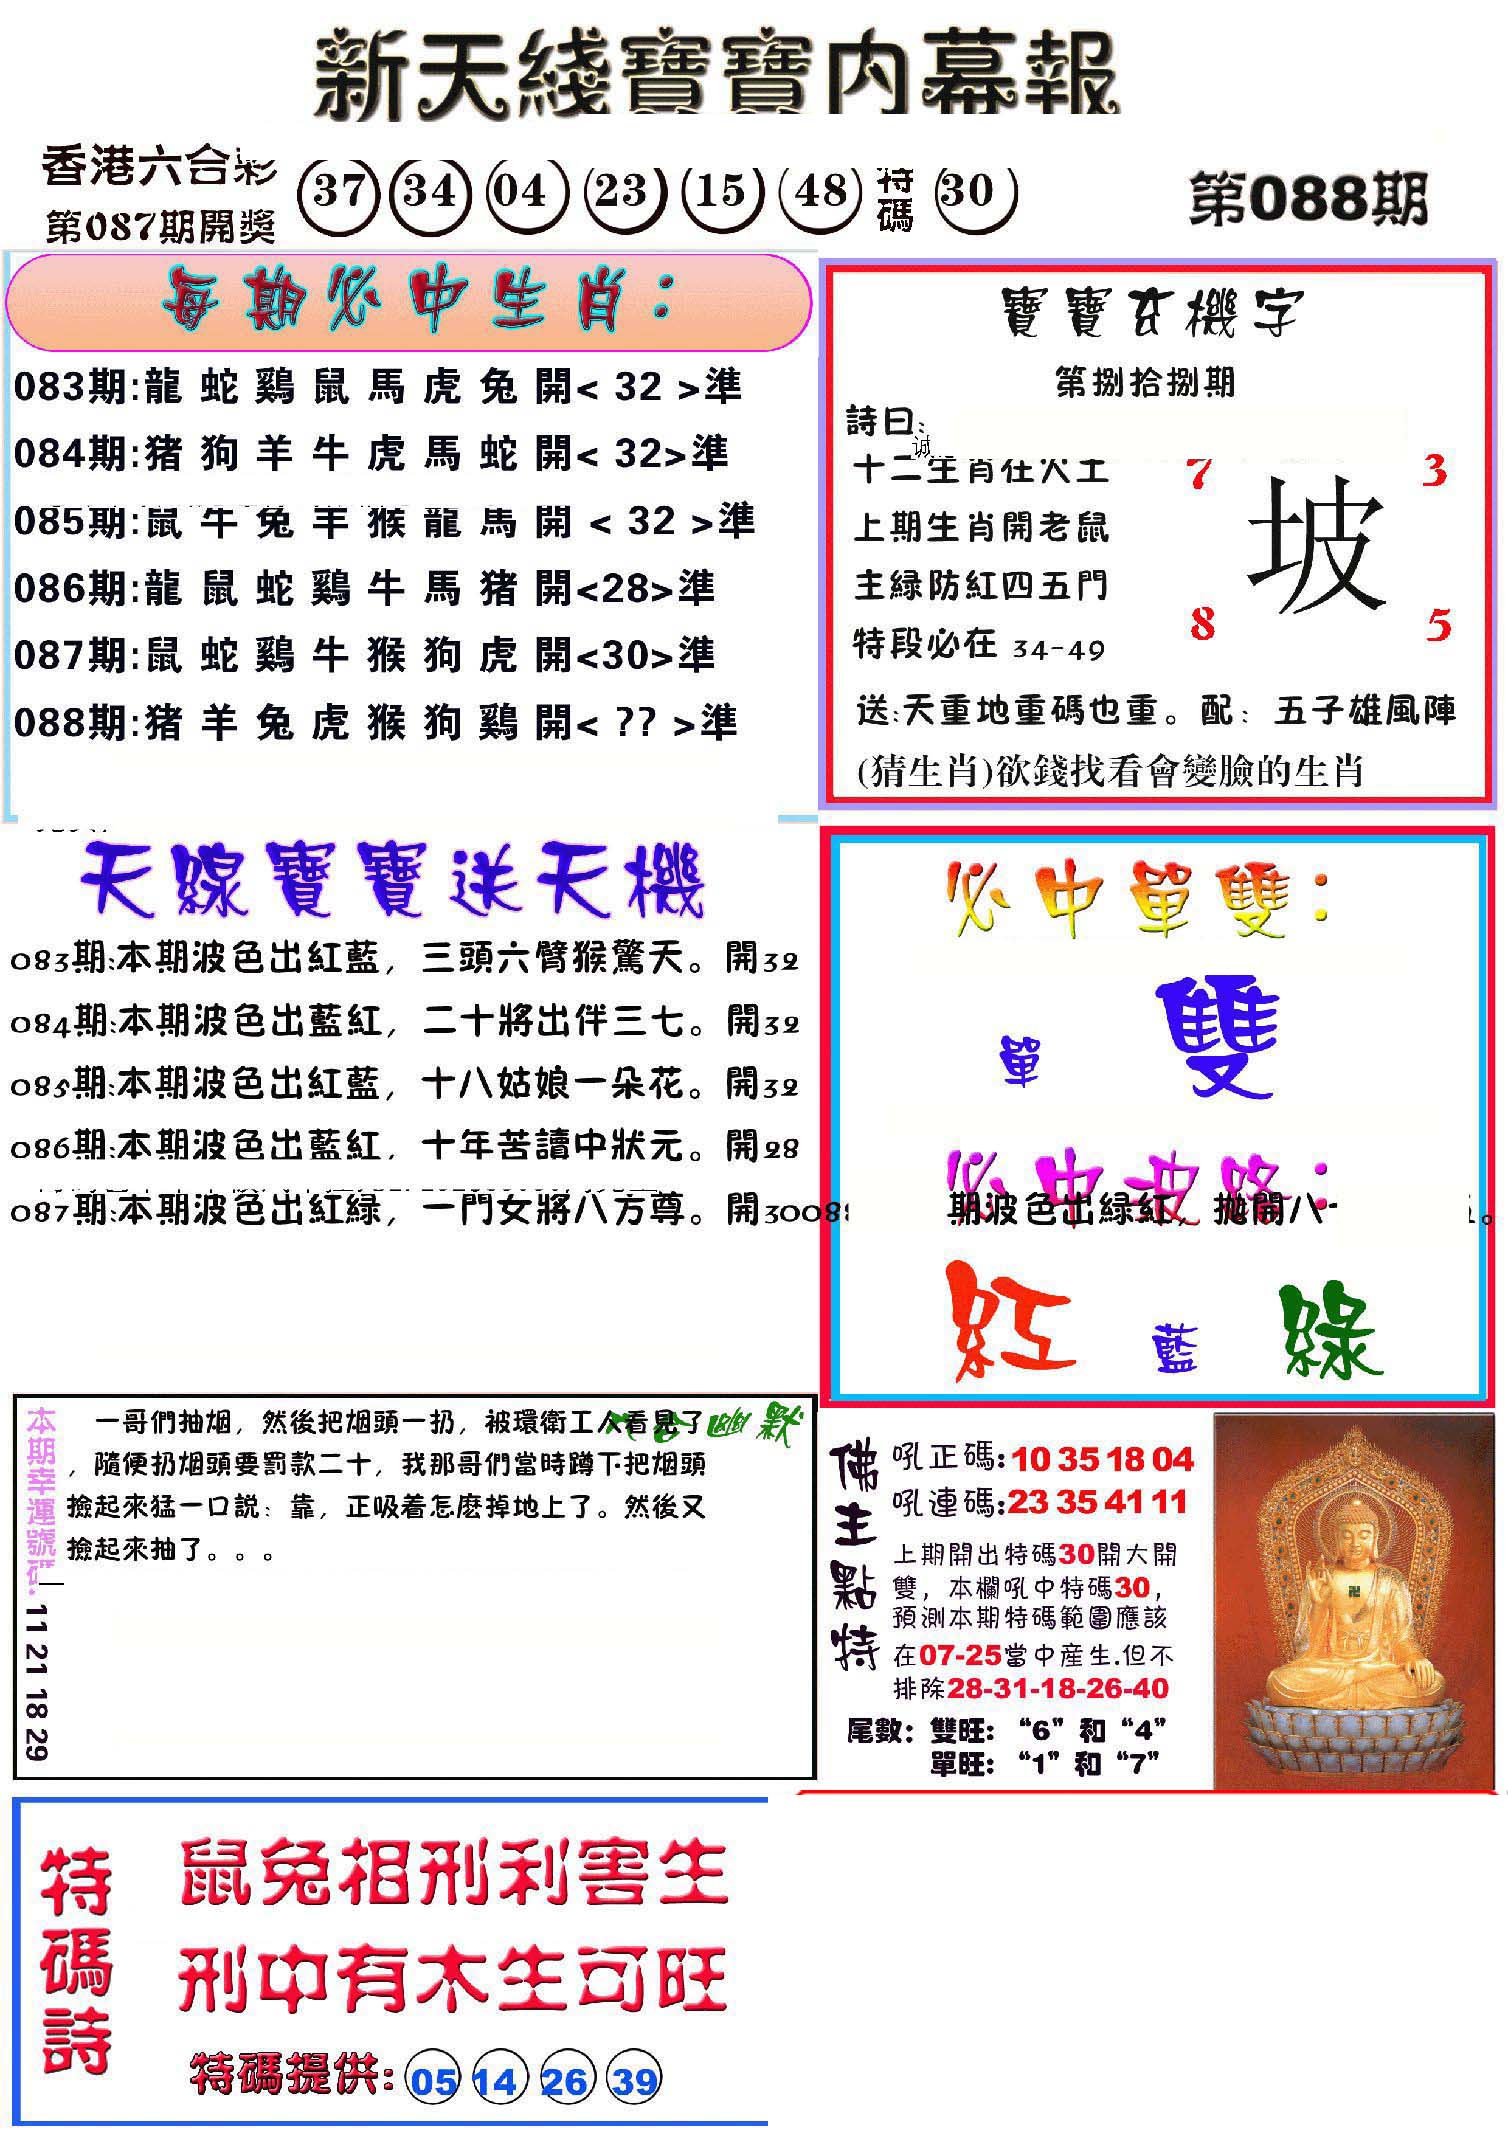 新天綫寶寶內幕報
香港六合彩
第087期開獎
37 34 04 23 15 48 特碼 30
第088期
每期必中生肖：
083期:龍 蛇 鷄 鼠 馬 虎 兔 開< 32 >準
084期:猪 狗 羊 牛 虎 馬 蛇 開< 32>準
085期:鼠 牛 兔 羊 猴 龍 馬 開 < 32 >準
086期:龍 鼠 蛇 鷄 牛 馬 猪 開<28>準
087期:鼠 蛇 鷄 牛 猴 狗 虎 開<30>準
088期:猪 羊 兔 虎 猴 狗 鷄 開< ?? >準
寶寶玄機字
第捌拾捌期
詩曰:
诚
十二生肖在火土
上期生肖開老鼠
主緑防紅四五門
特段必在 34-49
7 3
坡
8 5
送:天重地重碼也重。配：五子雄風陣
(猜生肖)欲錢找看會變臉的生肖
天線寶寶送天機
083期:本期波色出紅藍，三頭六臂猴驚天。開32
084期:本期波色出藍紅，二十將出伴三七。開32
085期:本期波色出紅藍，十八姑娘一朵花。開32
086期:本期波色出藍紅，十年苦讀中狀元。開28
087期:本期波色出紅緑，一門女將八方尊。開30088
期波色出緑紅，拋開八
必中單雙：
單 雙
必中波路：
紅 藍 綠
本期幸運號碼: 11 21 18 29
六合幽默
一哥們抽烟，然後把烟頭一扔，被環衛工人看見了
，隨便扔烟頭要罰款二十，我那哥們當時蹲下把烟頭
撿起來猛一口説：靠，正吸着怎麽掉地上了。然後又
撿起來抽了。。。
佛主點特
吼正碼:10 35 18 04
吼連碼:23 35 41 11
上期開出特碼30開大開
雙，本欄吼中特碼30，
預測本期特碼範圍應該
在07-25當中産生.但不
排除28-31-18-26-40
尾數：雙旺：“6”和“4”
單旺：“1”和“7”
特碼詩
鼠兔相刑利害生
刑中有木生可旺
特碼提供: 05 14 26 39